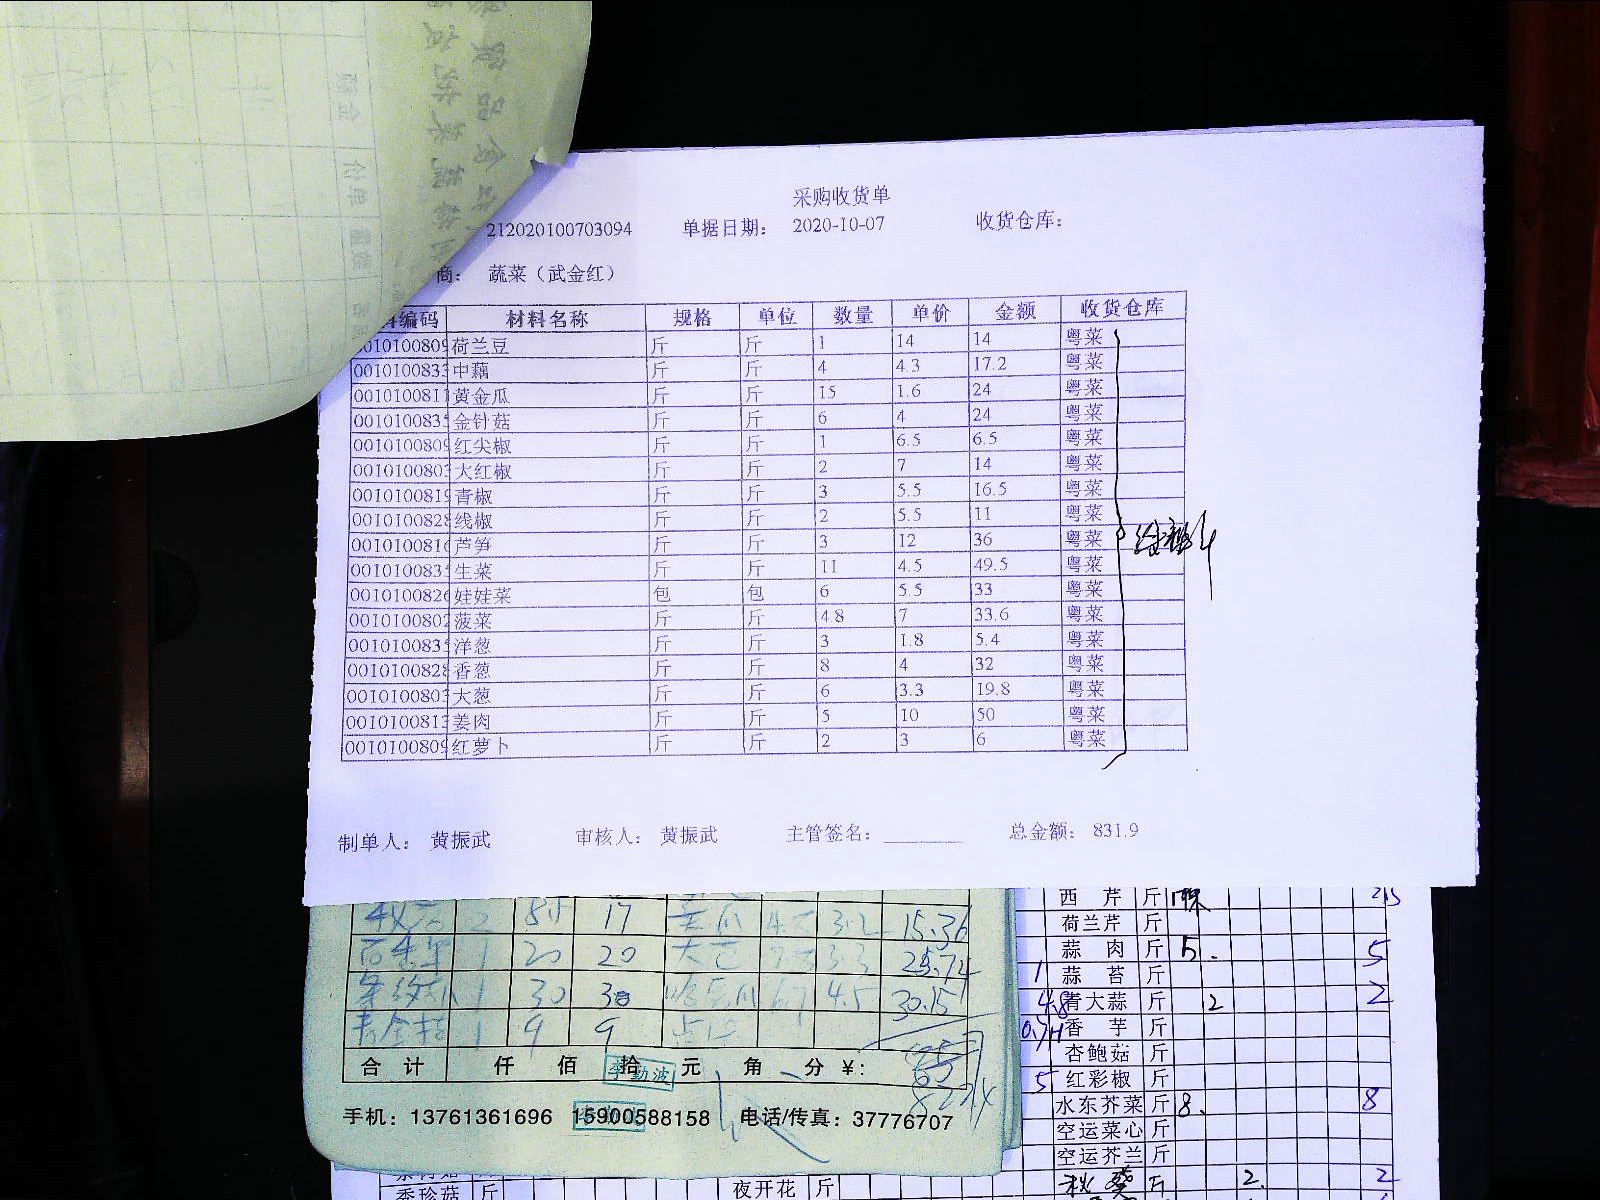 采购收货单
212020100703094 单据日期： 2020-10-07 收货仓库：
商： 蔬菜（武金红）
编码 材料名称 规格 单位 数量 单价 金额 收货仓库
0010100809 荷兰豆 斤 斤 1 14 14 粤菜
0010100833 中藕 斤 斤 4 4.3 17.2 粤菜
0010100811 黄金瓜 斤 斤 15 1.6 24 粤菜
001010083 金针菇 斤 斤 6 4 24 粤菜
0010100809 红尖椒 斤 斤 1 6.5 6.5 粤菜
001010080 大红椒 斤 斤 2 7 14 粤菜
0010100819 青椒 斤 斤 3 5.5 16.5 粤菜
0010100828 线椒 斤 斤 2 5.5 11 粤菜
0010100816 芦笋 斤 斤 3 12 36 粤菜
001010083 生菜 斤 斤 11 4.5 49.5 粤菜
0010100826 娃娃菜 包 包 6 5.5 33 粤菜
0010100802 菠菜 斤 斤 4.8 7 33.6 粤菜
001010083 洋葱 斤 斤 3 1.8 5.4 粤菜
0010100828 香葱 斤 斤 8 4 32 粤菜
001010080 大葱 斤 斤 6 3.3 19.8 粤菜
0010100813 姜肉 斤 斤 5 10 50 粤菜
0010100809 红萝卜 斤 斤 2 3 6 粤菜
制单人： 黄振武 审核人： 黄振武 主管签名： 总金额： 831.9
2 8.5 17 3.2 15.36
1 20 20 大芒 3.3 25.74
1 30 30 哈密瓜 6.7 4.5 30.15
1 9 9
合计 仟 佰 拾 元 角 分 ¥:
李勤波
手机：13761361696 15900588158 电话/传真：37776707
西芹 斤
荷兰芹 斤
蒜肉 斤 5. 5
1 蒜苔 斤
4.8 青大蒜 斤 2 2
香芋 斤
杏鲍菇 斤
5 红彩椒 斤
水东芥菜 斤 8. 8
空运菜心 斤
空运芥兰 斤
秋葵 斤 2. 2
秀珍菇 斤 夜开花 斤